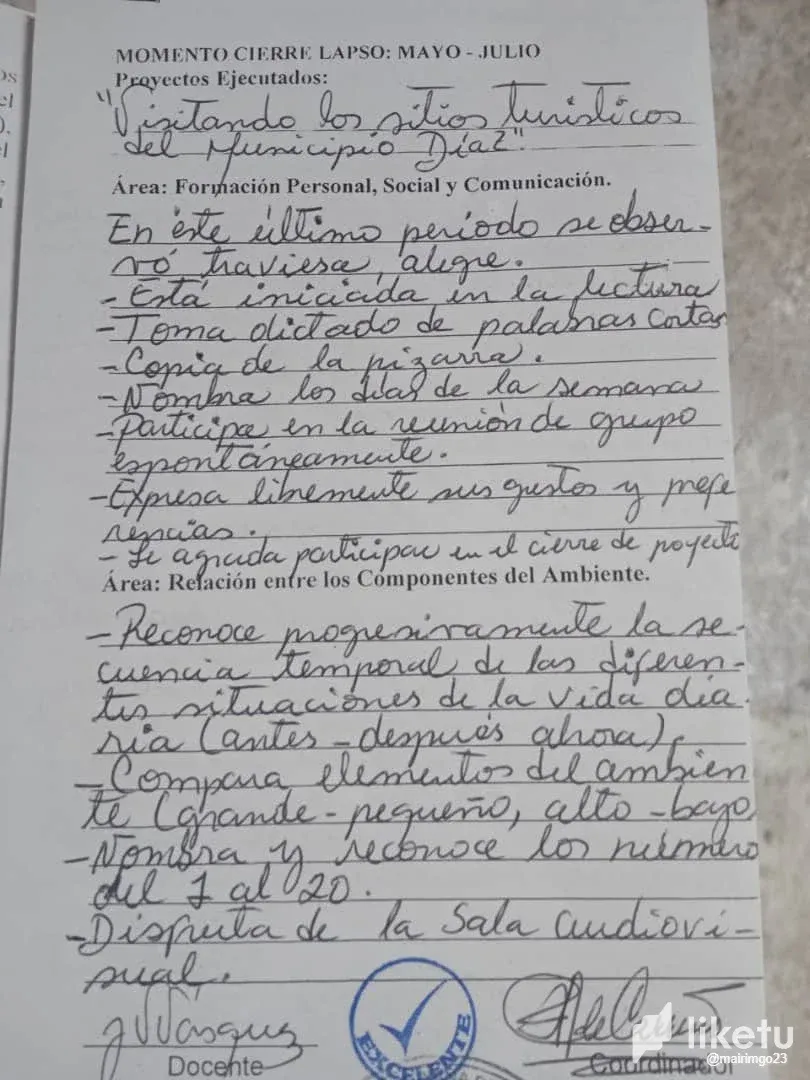 MOMENTO CIERRE LAPSO: MAYO - JULIO
Proyectos Ejecutados:
"Visitando los sitios turísticos
del Municipio Díaz".
Área: Formación Personal, Social y Comunicación.
En éste último período se obser-
vó traviesa, alegre.
- Está iniciada en la lectura
- Toma dictado de palabras cortas
- Copia de la pizarra.
- Nombra los días de la semana
- Participa en la reunión de grupo
espontáneamente.
- Expresa libremente sus gustos y prefe
rencias.
- Le agrada participar en el cierre de proyecto
Área: Relación entre los Componentes del Ambiente.
- Reconoce progresivamente la se-
cuencia temporal de las diferen-
tes situaciones de la vida dia
ria (antes - después ahora).
- Compara elementos del ambien
te (grande - pequeño, alto - bajo
- Nombra y reconoce los número
del 1 al 20.
- Disfruta de la Sala audiovi-
sual.
Vásquez
Docente
EXCELENTE
Coordinador
liketu
@mairimgo23